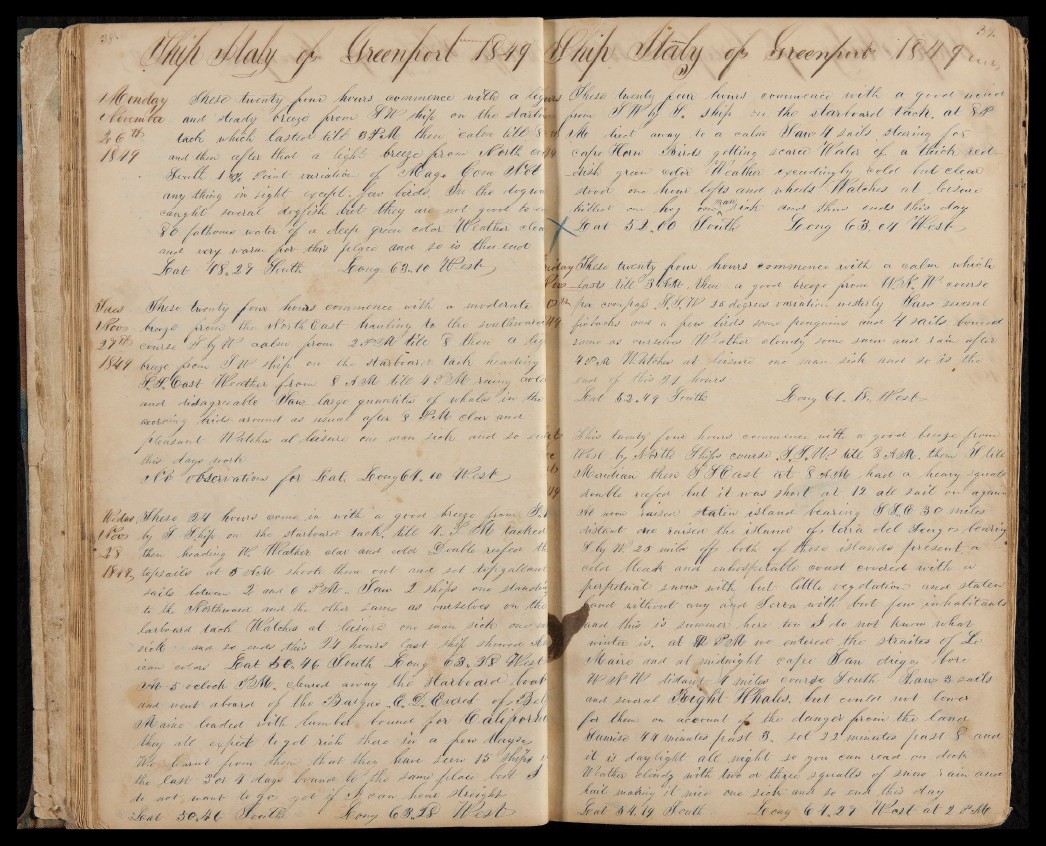 38
Ship Italy of Greenport 1849
Monday These twenty four hours commence with a light
November and steady breeze from SW ship on the starboard
26th tack which lasted till 3 PM then calm till 8
1849 and then after that a light breeze from North
South 1 Point variation of
any thing in sight except few birds. In the dog
caught several dogfish but they are not good to
80 fathoms water of a deep green color Weather clear
and very warm for this place and so is the end
Lat 48,29 South Long 63,10 West
Tues These twenty four hours commence with a moderate
Nov breeze from the North East hauling to the southward
27th course S by W calm from 2 PM till 8 then a
1849 breeze from SW ship on the starboard tack heading
S.S.East Weather from 8 AM till 4 PM rainy cold
and disagreeable Saw large quantities of whales in the
birds around as usual after 8 PM clear and
pleasant Watches at leisure one man sick and so
this days work
No observations for Lat. Long 64.10 West
Wedns, These 24 hours come in with a good breeze from
Nov by S Ship on the starboard tack, till 4 PM tacked
28 then heading W. Weather clear and cold Double reefed the
1849, topsails at 5 AM shook them out and set
sails between 2 and 6 PM. Saw 2 ships one standing
to the Northward and the other same as ourselves on the
larboard tack Watches at leisure one man sick
sick and so ends this 24 hours Last ship showed
colors Lat 50,46 South Long 63,28 West
At 5 oclock PM, cleared away the starboard boat
and went aboard of the Barque of
Maine loaded with lumber bound for California
they all expect to get rich there in a few
We learnt from them that they have seen 15 ships
the last 3 or 4 days bound to the same place but I
do not want to go yet if I can
Lat 50,46 South Long 63,28 West
39
Ship Italy of Greenport 1849
These twenty four hours commence with a good wind
from SW by S. ship on the starboard tack. at 8 P
M died away to a calm Saw 4 sails steering for
cape Horn Birds getting scarce Water of a thick red-
dish green color Weather exceedingly cold but clear
stood one hour and Watches at leisure
killed one hog one man sick and thus ends this day
Lat 52,00 South Long 63,04 West
These twenty four hours commence with a calm which
lasts till 3 then a good breeze from course
per compass S.S.W 15 degrees variation westerly Saw several
finbacks and a few birds some penguins and 4 sails bound
same as ourselves Weather cloudy some snow and rain after
4 PM Watches at leisure one man sick and so is the
end of this 24 hours
Lat 52,49 South Long 61,18, West
This twenty four hours commences with a good breeze from
West by North Ships course S.S.W till 8 AM. then S till
Meridian then S S East at 8 AM had a heavy squall
double reefed but it was short at 12 all sail on again
At noon raised Staten island bearing S S.E 30 miles
distant we raised the island of terra del Fuego bearing
S. by W. 25 miles off both of these islands present a
cold bleak and unhospitable coast covered with a
perpetual snow with but little vegetation and staten
land without any and Terra with but few inhabitants
and this is summer here too I do not know what
winter is. at PM we entered the straites of Le
Maire and at midnight cape San diego bore
W N W distant 4 miles course South Saw 3 sails
and several Right Whales. but could not lower
for them on account of the danger from the land
Sunrise 44 minutes past 3. set 22 minutes past 8 and
it is daylight all night so you can read on deck
Weather cloudy with two or three squalls of snow rain and
hail making it nice one sick and so ends this day
Lat 54,19 South Long 64,27 West at 2 PM